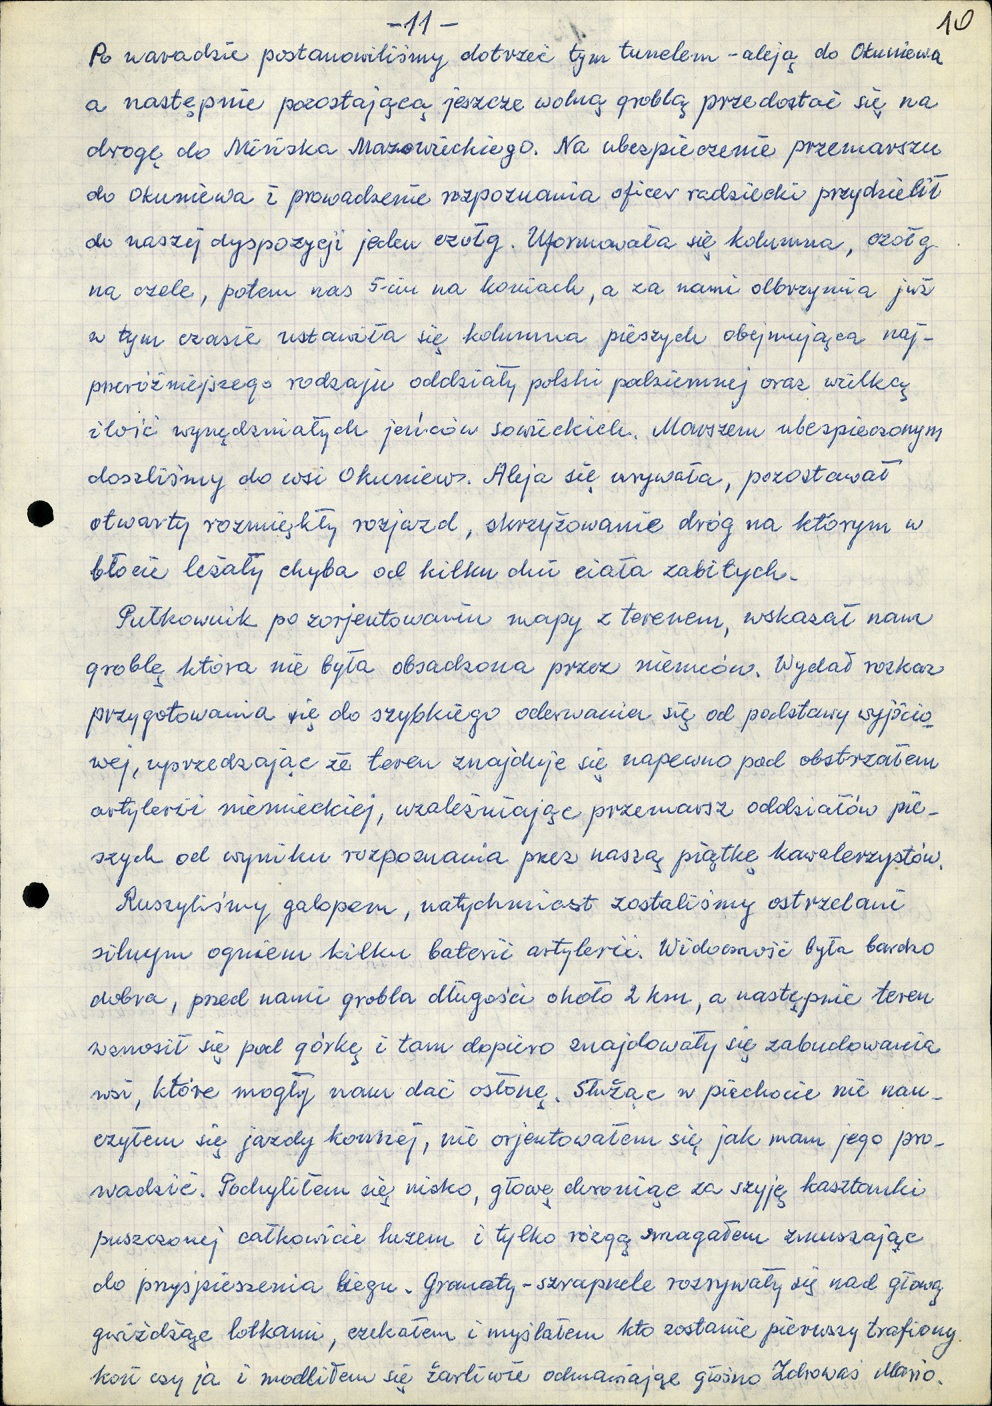 -11-
10
Po naradzie postanowiliśmy dotrzeć tym tunelem - aleją do Okuniewa
a następnie pozostającą jeszcze wolną groblą przedostać się na
drogę do Mińska Mazowieckiego. Na ubezpieczenie przemarszu
do Okuniewa i prowadzenie rozpoznania oficer radziecki przydzielił
do naszej dyspozycji jeden czołg. Uformowała się kolumna, czołg
na czele, potem nas 5-ciu na koniach, a za nami olbrzymia już
w tym czasie ustawiła się kolumna pieszych obejmująca naj-
przeróżniejszego rodzaju oddziały polski podziemnej oraz wielką
ilość wynędzniałych jeńców sowieckich. Marszem ubezpieczonym
doszliśmy do wsi Okuniew. Aleja się urywała, pozostawał
otwarty rozmiękły rozjazd, skrzyżowanie dróg na którym w
błocie leżały chyba od kilku dni ciała zabitych.
Pułkownik po zorjentowaniu mapy z terenem, wskazał nam
groblę która nie była obsadzona przez niemców. Wydał rozkaz
przygotowania się do szybkiego oderwania się od podstawy wyjścio-
wej, uprzedzając że teren znajduje się napewno pod obstrzałem
artylerii niemieckiej, uzależniając przemarsz oddziałów pie-
szych od wyniku rozpoznania przez naszą piątkę kawalerzystów.
Ruszyliśmy galopem, natychmiast zostaliśmy ostrzelani
silnym ogniem kilku baterii artylerii. Widoczność była bardzo
dobra, przed nami grobla długości około 2 km, a następnie teren
wznosił się pod górkę i tam dopiero znajdowały się zabudowania
wsi, które mogły nam dać osłonę. Służąc w piechocie nie nau-
czyłem się jazdy konnej, nie orjentowałem się jak mam jego pro-
wadzić. Pochyliłem się nisko, głowę chroniąc za szyję kasztanki
puszczonej całkowicie luzem i tylko rózgą smagałem zmuszając
do przyśpieszenia biegu. Granaty - szrapnele rozrywały się nad głową
gwiżdżąc lotkami, czekałem i myślałem kto zostanie pierwszy trafiony
koń czy ja i modliłem się żarliwie odmawiając głośno Zdrowaś Mario.